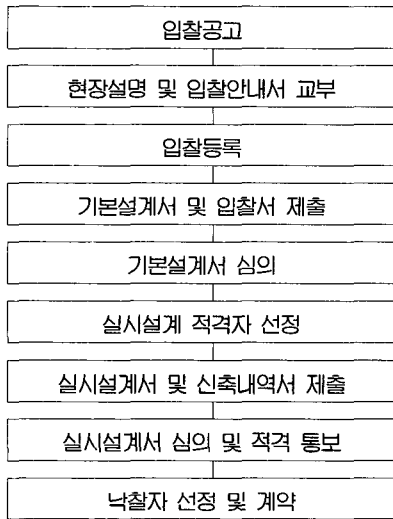 입찰공고
현장설명 및 입찰안내서 교부
입찰등록
기본설계서 및 입찰서 제출
기본설계서 심의
실시설계 적격자 선정
실시설계서 및 신축내역서 제출
실시설계서 심의 및 적격 통보
낙찰자 선정 및 계약